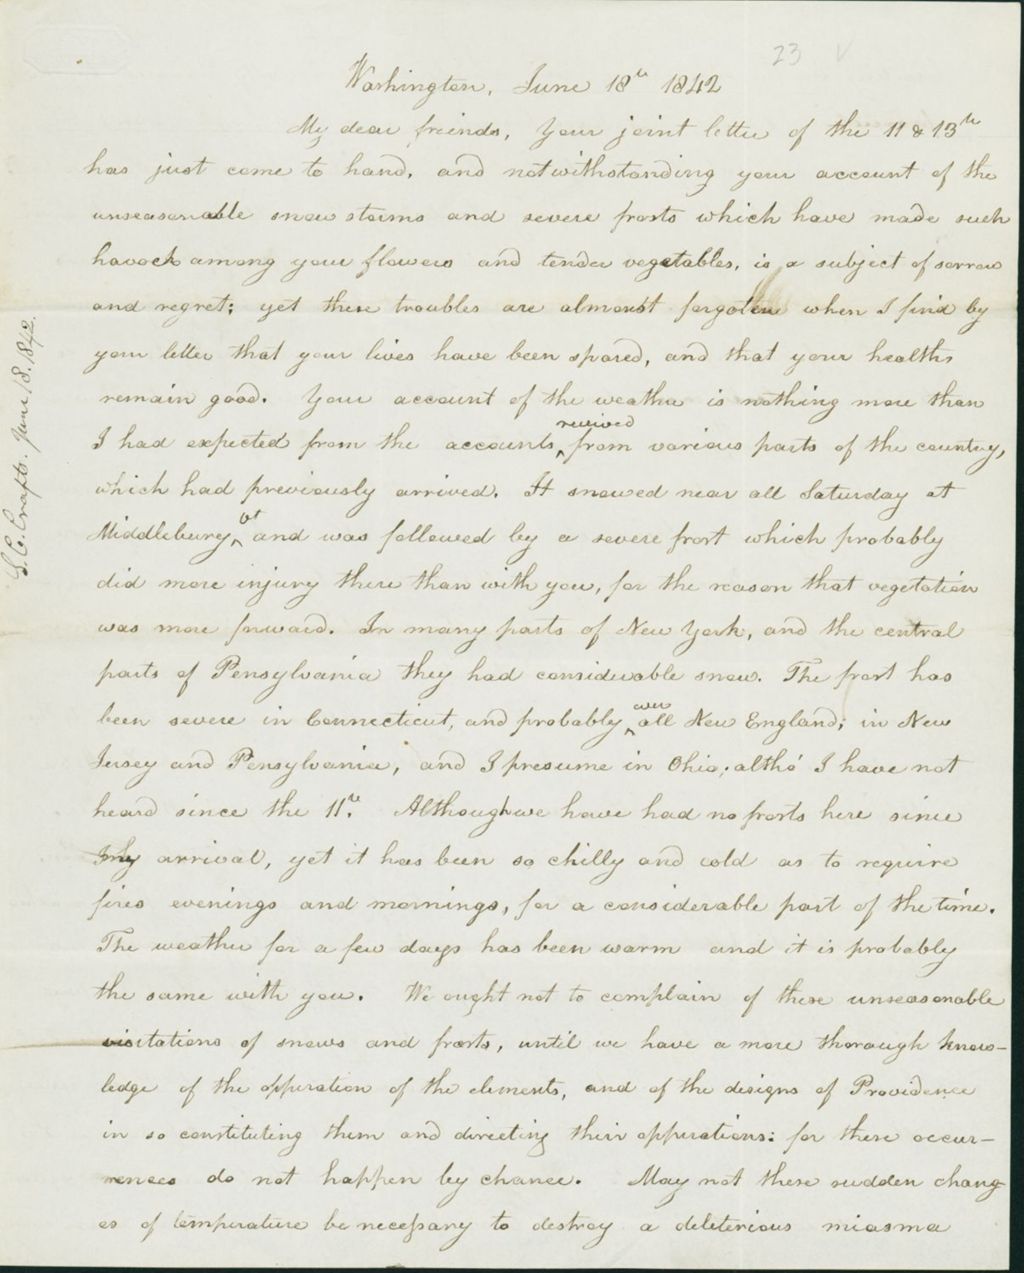 23
Washington, June 18th 1842
My dear friends, Your joint letter of the 11 & 13th
has just come to hand, and notwithstanding your account of the
unseasonable snow storms and severe frosts which have made such
havock among your flowers and tender vegetables, is a subject of sorrow
and regret; yet these troubles are almost forgotten when I find by
your letter that your lives have been spared, and that your healths
remain good. Your account of the weather is nothing more than
I had expected from the accounts received from various parts of the country,
which had previously arrived. It snowed near all Saturday at
Middlebury Vt and was followed by a severe frost which probably
did more injury there than with you, for the reason that vegetation
was more forward. In many parts of New York, and the central
parts of Pensylvania they had considerable snow. The frost has
been severe in Connecticut, and probably over all New England; in New
Jersey and Pensylvania, and I presume in Ohio; altho' I have not
heard since the 11th. Although we have had no frosts here since
my arrival, yet it has been so chilly and cold as to require
fires evenings and mornings, for a considerable part of the time.
The weather for a few days has been warm and it is probably
the same with you. We ought not to complain of these unseasonable
visitations of snows and frosts, until we have a more thorough know-
ledge of the opperation of the elements, and of the designs of Providence
in so constituting them and directing their opperations: for these occur-
rences do not happen by chance. May not these sudden chang
es of temperature be necessary to destroy a deleterious miasma
S. C. Crafts. June 18. 1842.